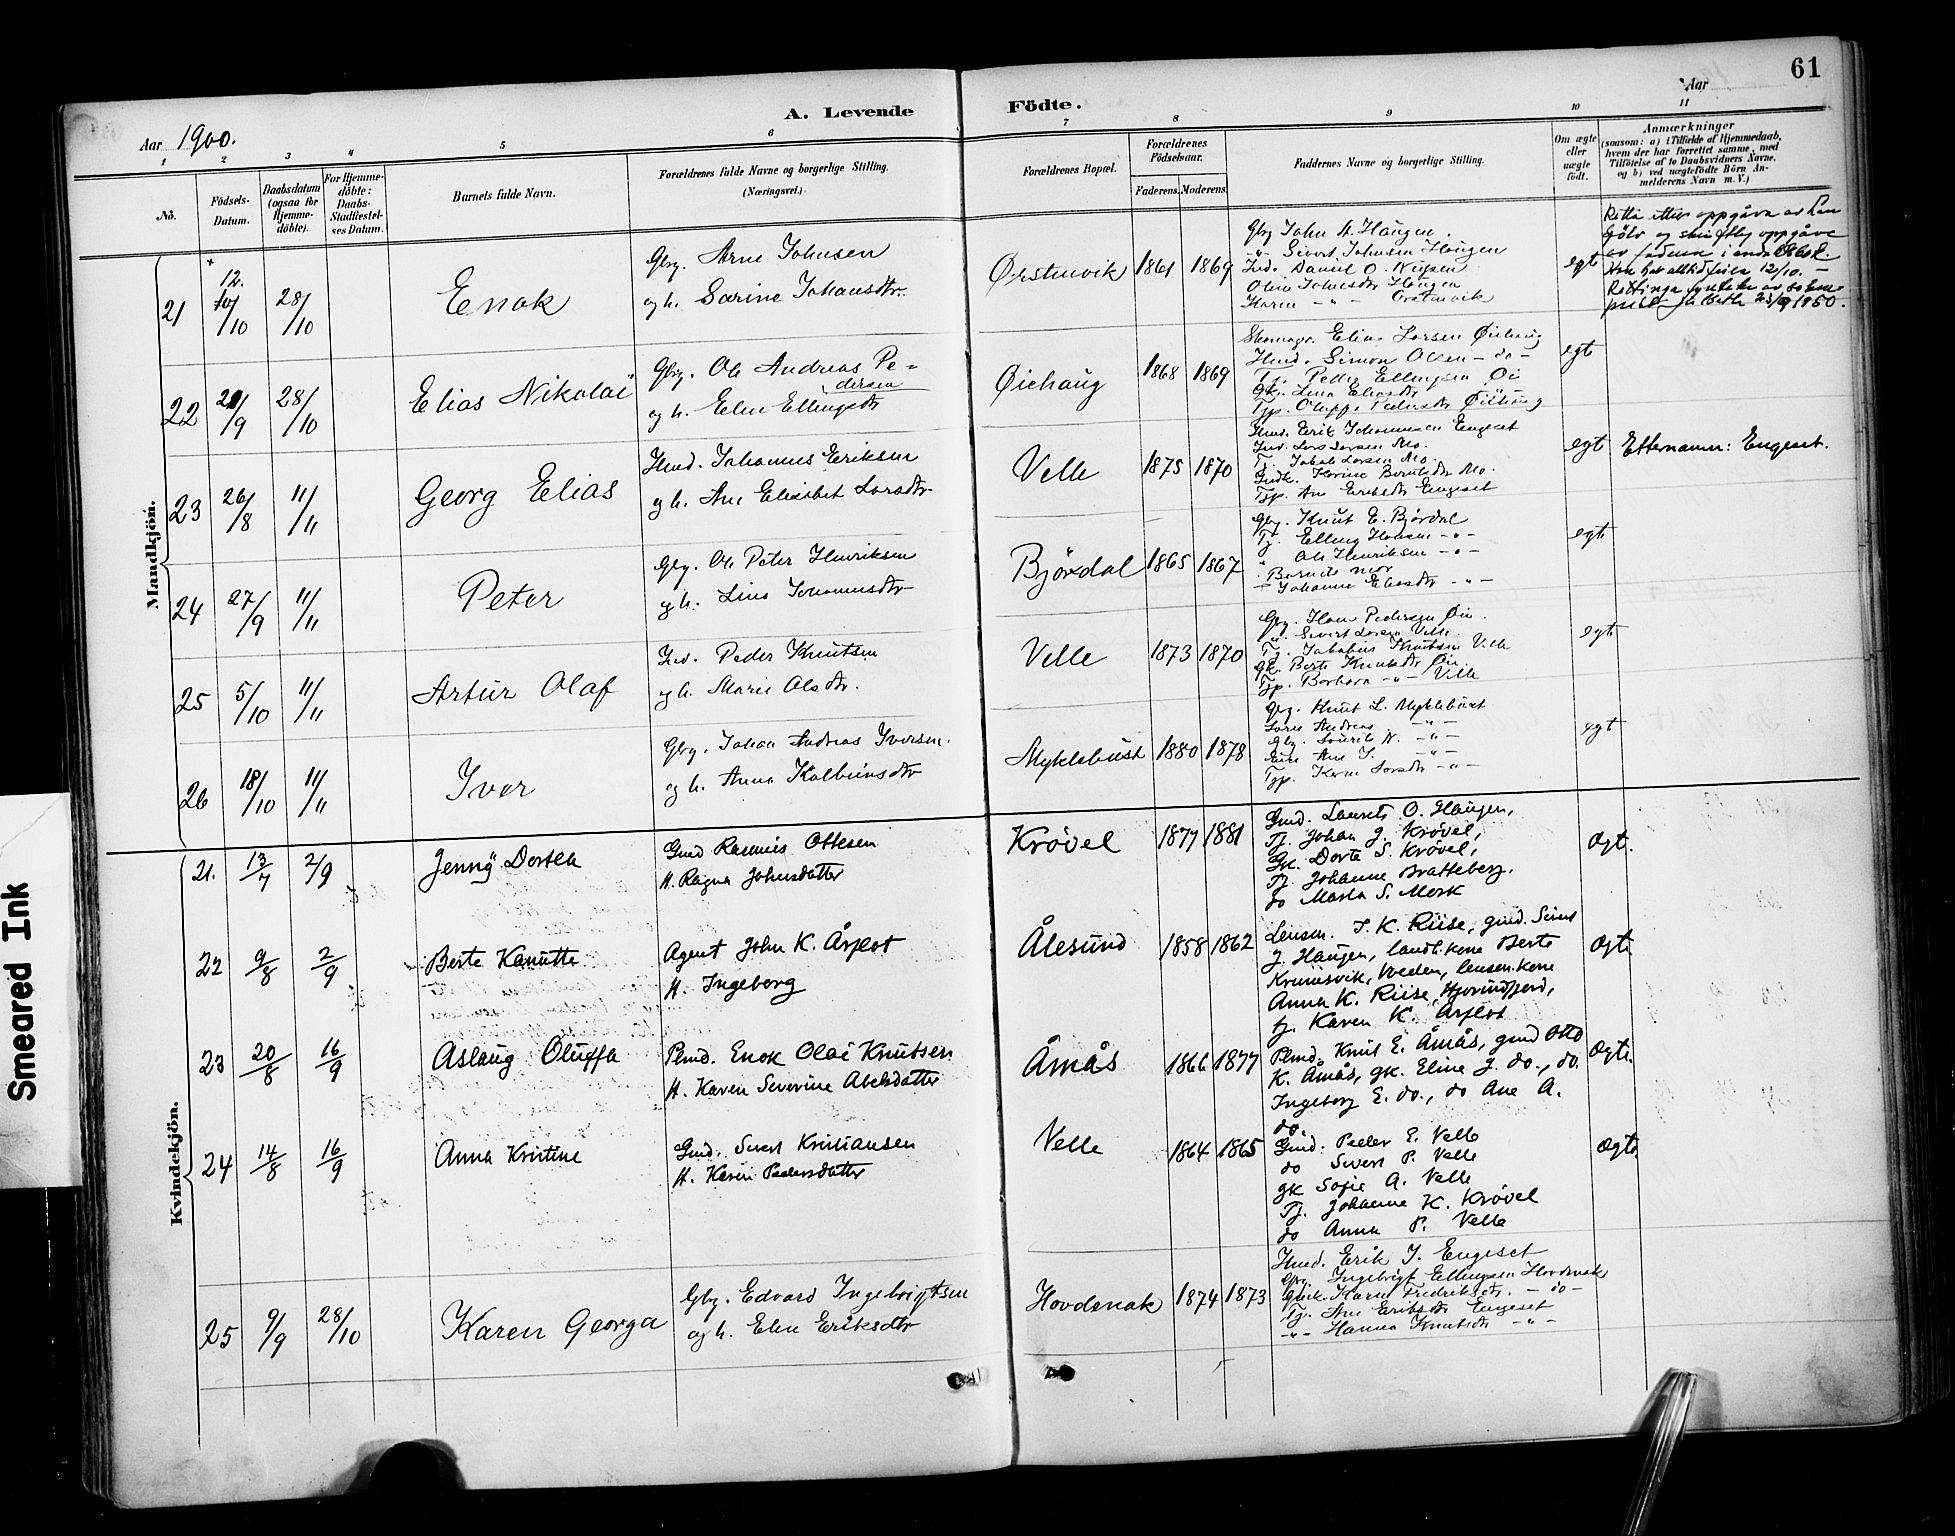 61
Aar 1900.
A. Levende
Födte.
Aar
1 2 3 4 5 6 7 8 9 10 11
Nô.
Födsels-
Datum.
Daabsdatum
(ogsaa for
Hjemme-
döbte).
For Hjemme-
döbte:
Daabs-
Stadfæstel-
ses Datum.
Barnets fulde Navn.
Forældrenes fulde Navne og borgerlige Stilling.
(Næringsvei.)
Forældrenes Bopæl.
Forældrenes
Födselsaar.
Faderens. Moderens.
Faddernes Navne og borgerlige Stilling.
Om ægte
eller
uægte
födt.
Anmærkninger
(saasom: a) i Tilfælde af Hjemmedaab,
hvem der har forrettet samme, med
Tilföielse af to Daabsvidners Navne,
og b) ved uægtefödte Börn An-
melderens Navn m. V.)
Mandkjön.
21
12.
10/10
28/10
Enok
Gbr. Arne Johnsen
og h. Sarine Johansdtr.
Ørstenvik
1861 1869
Gbr John A. Haugen.
-"- Sivert Johnsen Haugen
Ind. Daniel O.
Oline Johnsdtr Haugen
Karen -"- Ørstenvik
egt
Retta etter oppgåva av
22
28/10
Elias Nikolai
Gbr. Ole Andreas Pe-
dersen
og h. Elen Ellingsdtr
Øiehaug
1868 1869
Skomagr. Elias Larsen Øiehaug
Hmd. Simon Olsen - do -
Tj. Peder Ellingsen Øie
Gk. Lina Eliasdtr
Tjp. Oluffa Pedersdtr Øiehaug
egt
23
26/8
11/11
Georg Elias
Hmd. Johannes Eriksen
og h. Ane Elisabet Larsdtr.
Velle
1875 1870
Hmd. Erik Johannesen Engeset
Ind. Lars Larsen Mo.
Tj. Jakob Larsen Mo.
Tjp. Ane Eriksdtr Engeset
egt
Etternamn: Engeset.
24
27/9
11/11
Peter
Gbr. Ole Peter Henriksen
og h. Lina Johannesdtr
Björdal
1865 1867
Gbr. Knut E. Bjørdal
Tj. Elling Hansen -"-
" Ole Henriksen -"-
Barnets mor
- Johanne Eliasdtr -"-
egt
25
5/10
11/11
Artur Olaf
Ind. Peder Knutsen
og h. Marie Olsdtr.
Velle
1873 1870
Gbr. Hans Pedersen Øie.
". Sivert Larsen Velle.
Tj. Jakobus Knutsen Velle
Gk. Berte Knutsdtr Øie.
Tjp. Barbara -"- Velle
egt
26
18/10
11/11
Iver
Gbr. Johan Andreas Iversen.
og h. Anna Kolbeinsdtr
Myklebust
1880 1878
Gbr. Knut L. Myklebust
Lars Andreas -"-
Gbr. Laurits N. -"-
Ane I. -"-
Tjp. Karen Larsdtr -"-
egt
Kvindekjön.
21.
13/7
2/9
Jenny Dortea
Gmd Rasmus Ottesen
H. Ragna Johnsdatter
Krövel
1877 1881
Gmd. Laurits O. Haugen,
Tj. Johan J. Krövel,
Gk. Dorte S. Krövel,
Tj. Johanne Bratteberg.
do Marta S. Mork
Ægt.
22
9/8
2/9
Berte Kanutte
Agent John K. Årflot
H. Ingeborg
Ålesund
1858 1862
Lensm. J. K. Riise, gmd. Sivert
J. Haugen, landh.kone Berte
Krumsvik, Voeden, lensm.kone
Anna K. Riise, Hjorundfjord,
tj. Karen K. Årflot
Ægte
23
20/8
16/9
Aslaug Oluffa
Pmd. Enok Olai Knutsen
H. Karen Severine Abelsdatter
Åmås
1866 1877
Pmd. Knut E. Åmås, gmd Otto
K. Åmås, gk. Eline J. do., do.
Ingeborg E. do., do Ane A.
do.
Ægte.
24
14/8
16/9
Anna Kristine
Gmd. Sivert Kristiansen
H. Karen Pedersdatter
Velle
1864 1865
Gmd. Peder E. Velle
do Sivert P. Velle
gk Sofie A. Velle
Tj. Johanne K. Krövel
do Anna P. Velle
Ægte
25
9/9
28/10
Karen Georga
Gbr. Edvard Ingebrigtsen
og h. Elen Eriksdtr
Hovdenak
1874 1873
Hmd. Erik J. Engeset
Gbr. Ingebrigt Ellingsen Hovdenak
Gbrk. Karen Fredriksdtr. - do -
Tj. Ane Eriksdtr Engeset
-"- Hanna Knutsdtr -"-
Smeared Ink